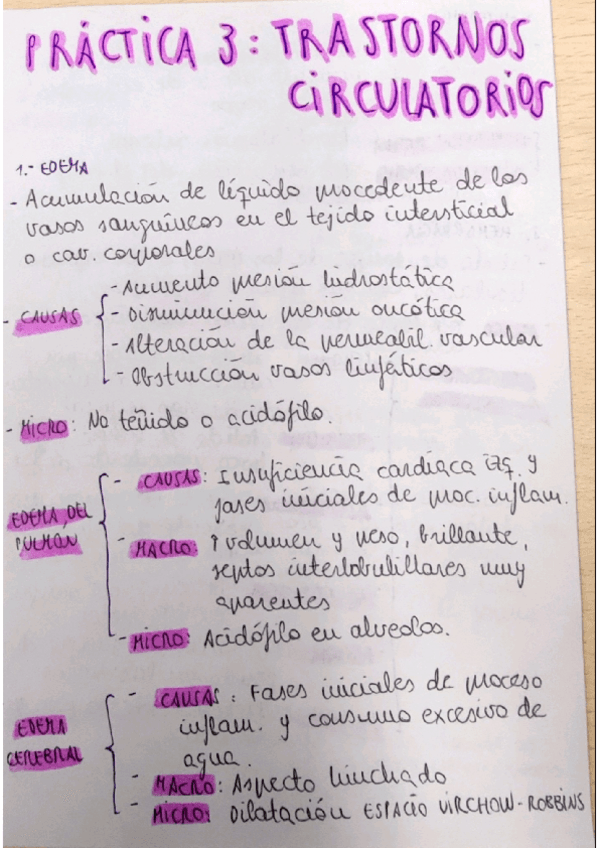 PRÁCTICA 3: TRASTORNOS
CIRCULATORIOS
1.- EDEMA
- Acumulación de líquido procedente de los
vasos sanguíneos en el tejido intersticial
o cav. corporales
- CAUSAS
- Aumento presión hidrostática
- Disminución presión oncótica
- Alteración de la permeabil. vascular
- Obstrucción vasos linfáticos
- MICRO: No teñido o acidófilo.
EDEMA DEL
PULMÓN
- CAUSAS: Insuficiencia cardíaca izq. y
fases iniciales de proc. inflam.
- MACRO: ↑ volumen y peso, brillante,
septos interlobulillares muy
aparentes
- MICRO: Acidófilo en alveolos.
EDEMA
CEREBRAL
- CAUSAS: Fases iniciales de proceso
inflam. y consumo excesivo de
agua.
- MACRO: Aspecto hinchado
- MICRO: Dilatación ESPACIO VIRCHOW-ROBBINS